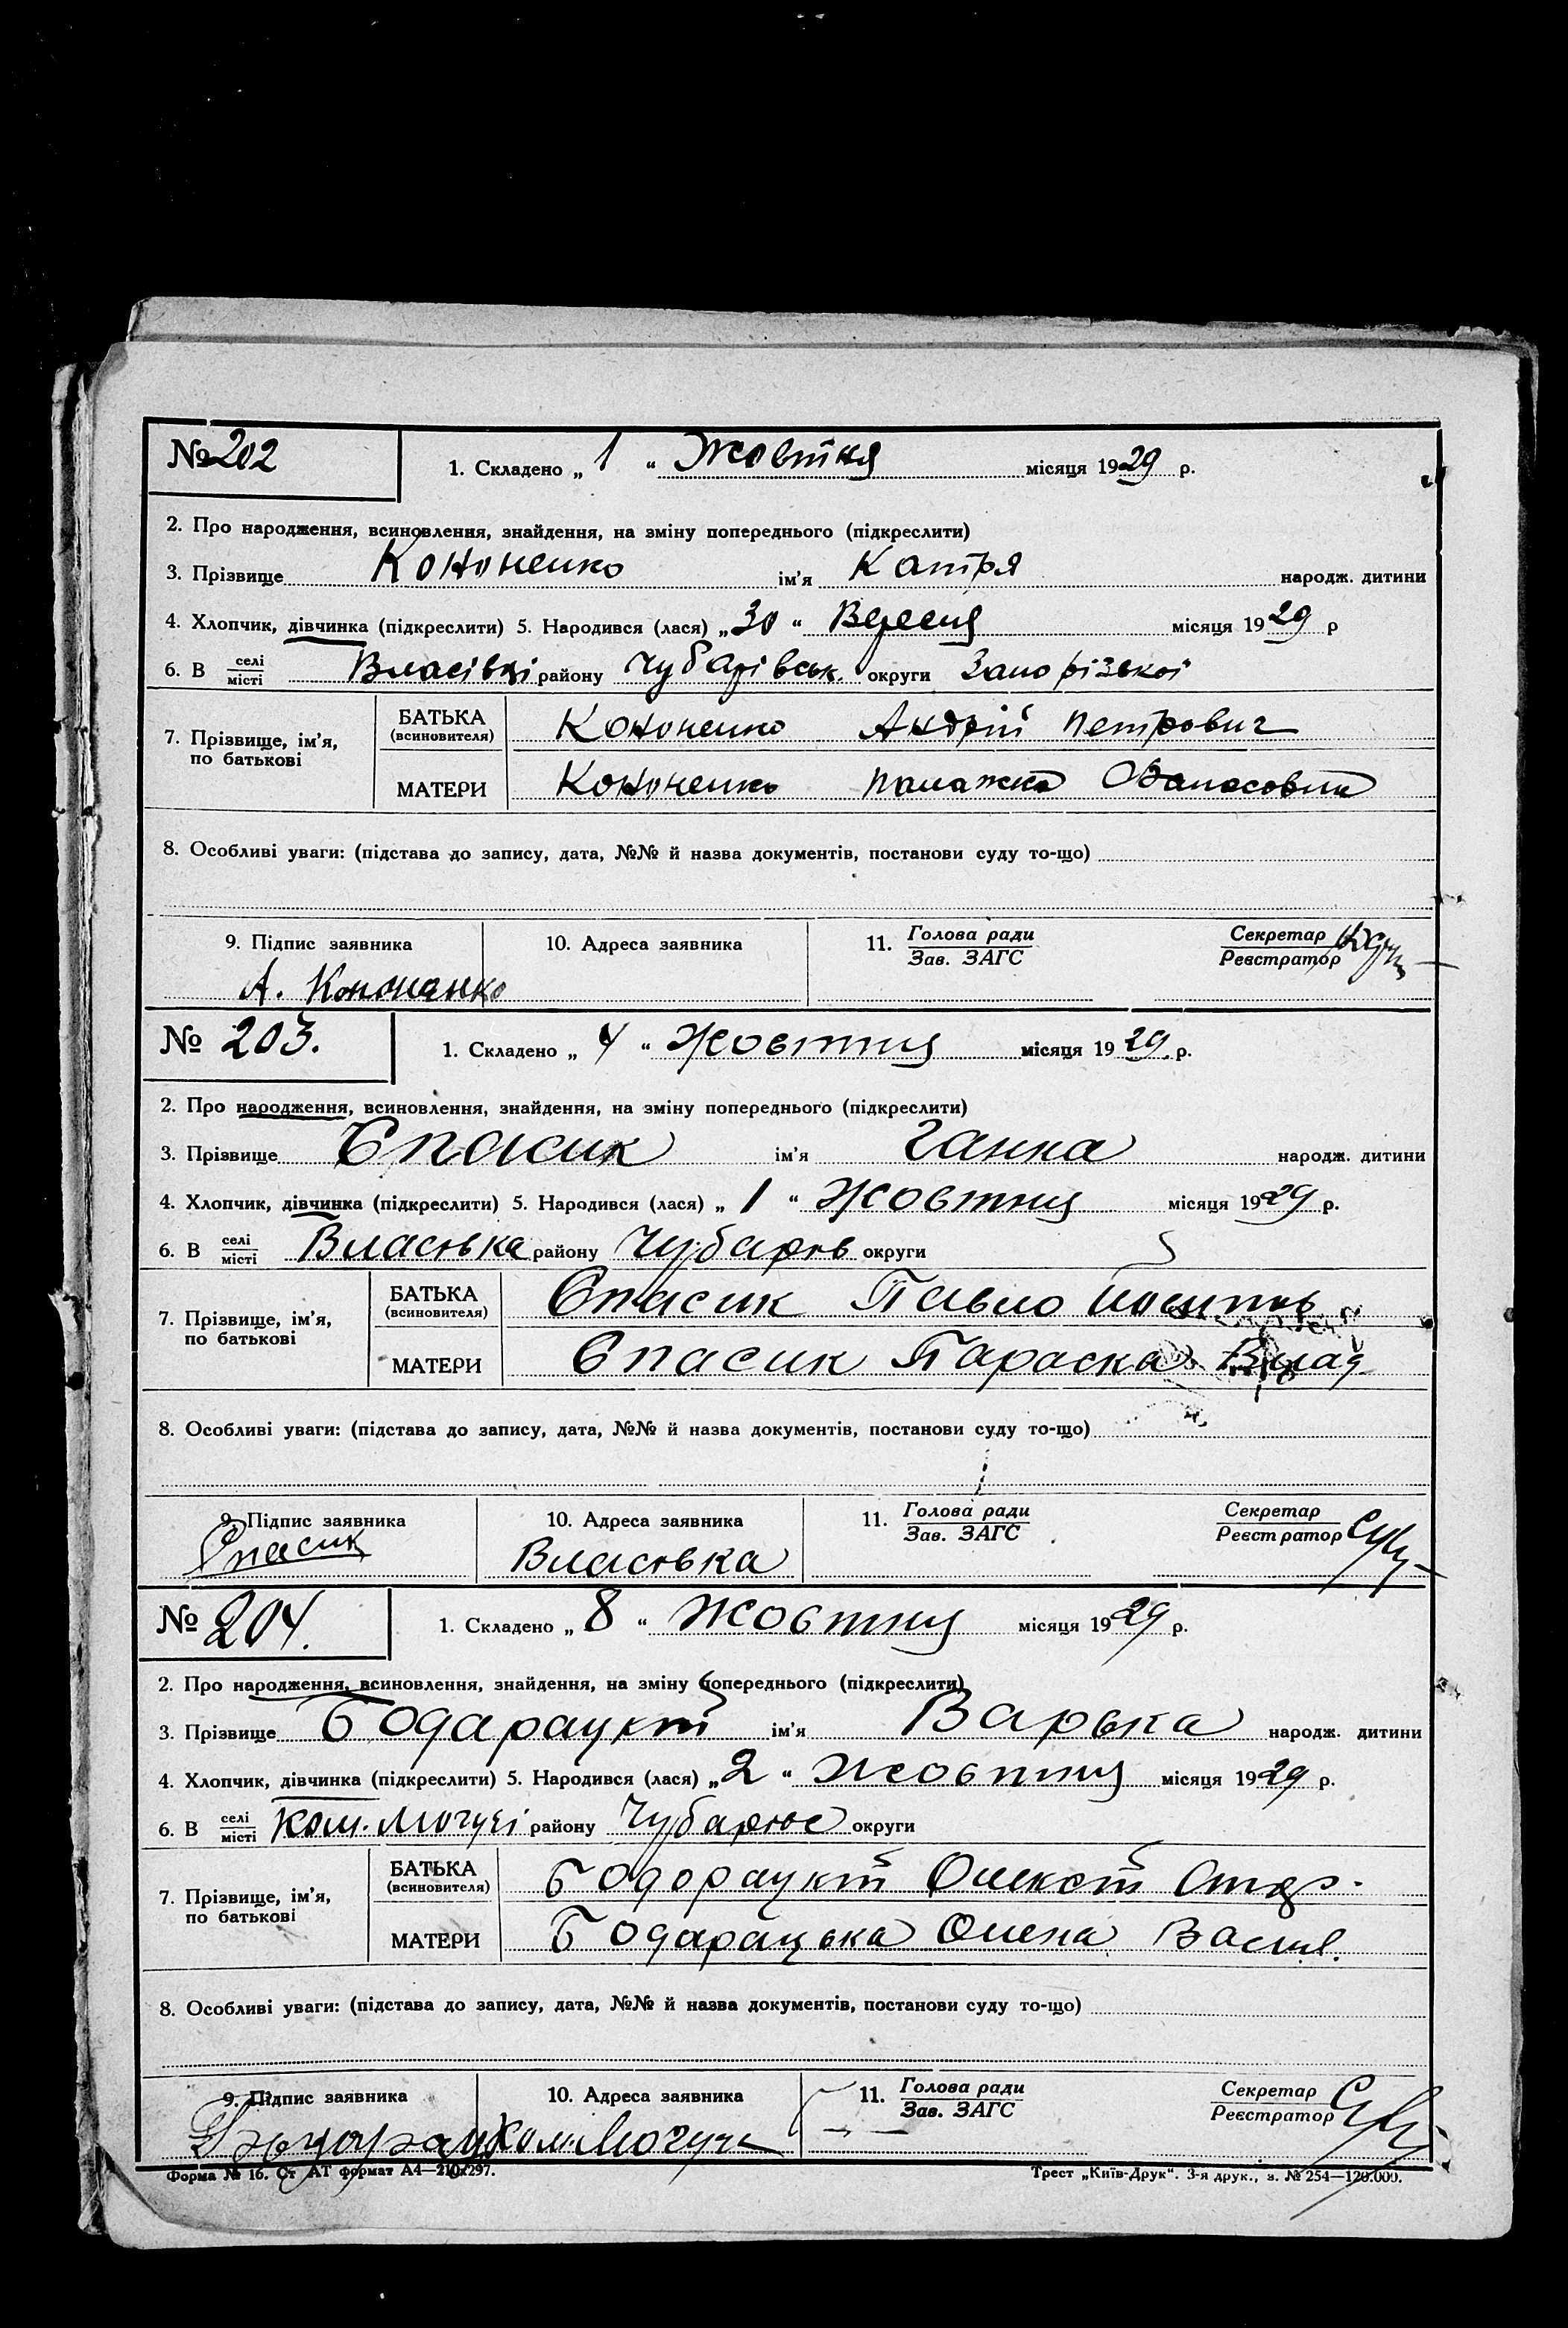 № 202 1. Складено „ 1 “ Жовтня місяця 1929 р.
2. Про народження, всиновлення, знайдення, на зміну попереднього (підкреслити)
3. Прізвище Кононенко ім'я Катря народж. дитини
4. Хлопчик, дівчинка (підкреслити) 5. Народився (лася) „ 30 “ Вересня місяця 1929 р
6. В селі місті Власівці району Чубарівськ. округи Запорізької
7. Прізвище, ім'я, по батькові БАТЬКА (всиновителя) Кононенко Андрій Петрович
МАТЕРИ Кононенко Палажка
8. Особливі уваги: (підстава до запису, дата, №№ й назва документів, постанови суду то-що)
9. Підпис заявника 10. Адреса заявника 11. Голова ради Зав. ЗАГС Секретар Реєстратор
А. Кононенко
№ 203. 1. Складено „ 4 “ Жовтня місяця 1929 р.
2. Про народження, всиновлення, знайдення, на зміну попереднього (підкреслити)
3. Прізвище Спасик ім'я Ганна народж. дитини
4. Хлопчик, дівчинка (підкреслити) 5. Народився (лася) „ 1 “ Жовтня місяця 1929 р.
6. В селі місті Власівка району Чубарів округи
7. Прізвище, ім'я, по батькові БАТЬКА (всиновителя) Спасик Павло
МАТЕРИ Спасик Параска
8. Особливі уваги: (підстава до запису, дата, №№ й назва документів, постанови суду то-що)
9. Підпис заявника 10. Адреса заявника 11. Голова ради Зав. ЗАГС Секретар Реєстратор
Спасик Власівка
№ 204. 1. Складено „ 8 “ Жовтня місяця 1929 р.
2. Про народження, всиновлення, знайдення, на зміну попереднього (підкреслити)
3. Прізвище ім'я Варька народж. дитини
4. Хлопчик, дівчинка (підкреслити) 5. Народився (лася) „ 2 “ Жовтня місяця 1929 р.
6. В селі місті Ком. Могучі району округи
7. Прізвище, ім'я, по батькові БАТЬКА (всиновителя)
МАТЕРИ Бодарацька Олена Васил.
8. Особливі уваги: (підстава до запису, дата, №№ й назва документів, постанови суду то-що)
9. Підпис заявника 10. Адреса заявника 11. Голова ради Зав. ЗАГС Секретар Реєстратор
Форма № 16. Ст АТ формат А4—210×297. Трест „Київ-Друк“. 3-я друк., з. № 254—120.000.